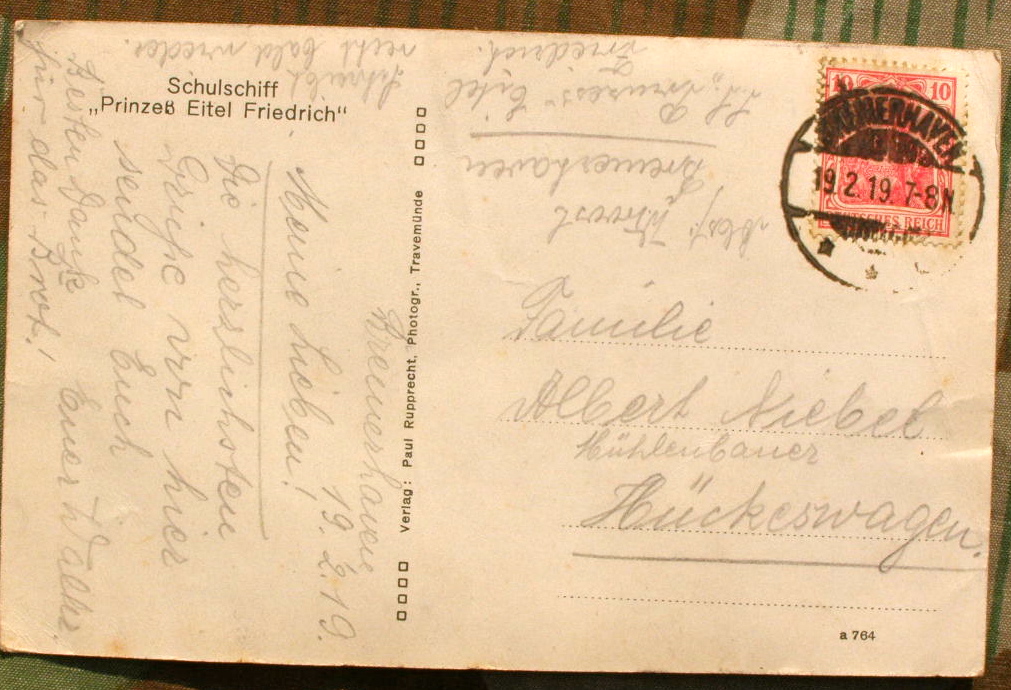 Schulschiff
„Prinzeß Eitel Friedrich“
Bremerhaven
19. 2. 19.
Meine Lieben!
Die herzlichsten
Grüße von hier
sendet Euch
Euer Walter.
Besten Dank
für das Brot!
Schreibt
recht bald wieder.
Verlag: Paul Rupprecht, Photogr., Travemünde
Bremerhaven
Eitel
Friedrich.
10 10
BREMERHAVEN
19.2.19.7-8N
DEUTSCHES REICH
Familie
Albert Niebel
Mühlenbauer
Hückeswagen.
a 764